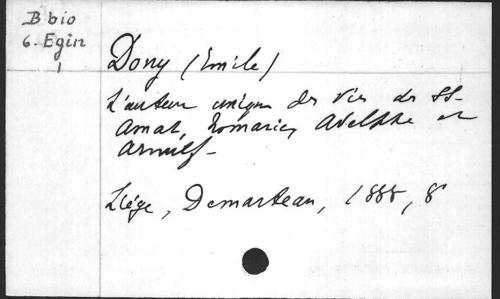 B bio
6. Egin
1
Dony (Emile)
L'auteur unique des Vies des SS.
Amat, Romaric, Adelphe et
Arnulf.
Liège, Demarteau, 1888, 8°